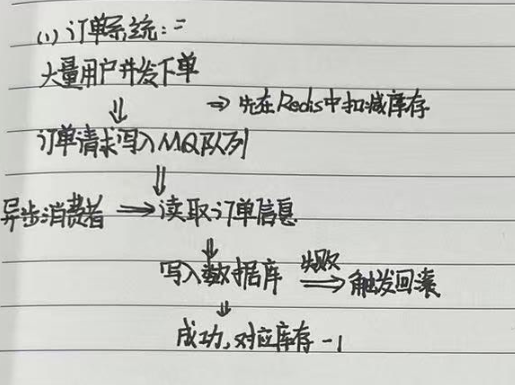 (1) 订单系统:=
大量用户并发下单
⇓ ⇒ 先在Redis中扣减库存
订单请求写入MQ队列
⇓
异步消费者 ⟹ 读取订单信息
⇓
写入数据库 失败⟹ 触发回滚
⇓
成功,对应库存-1